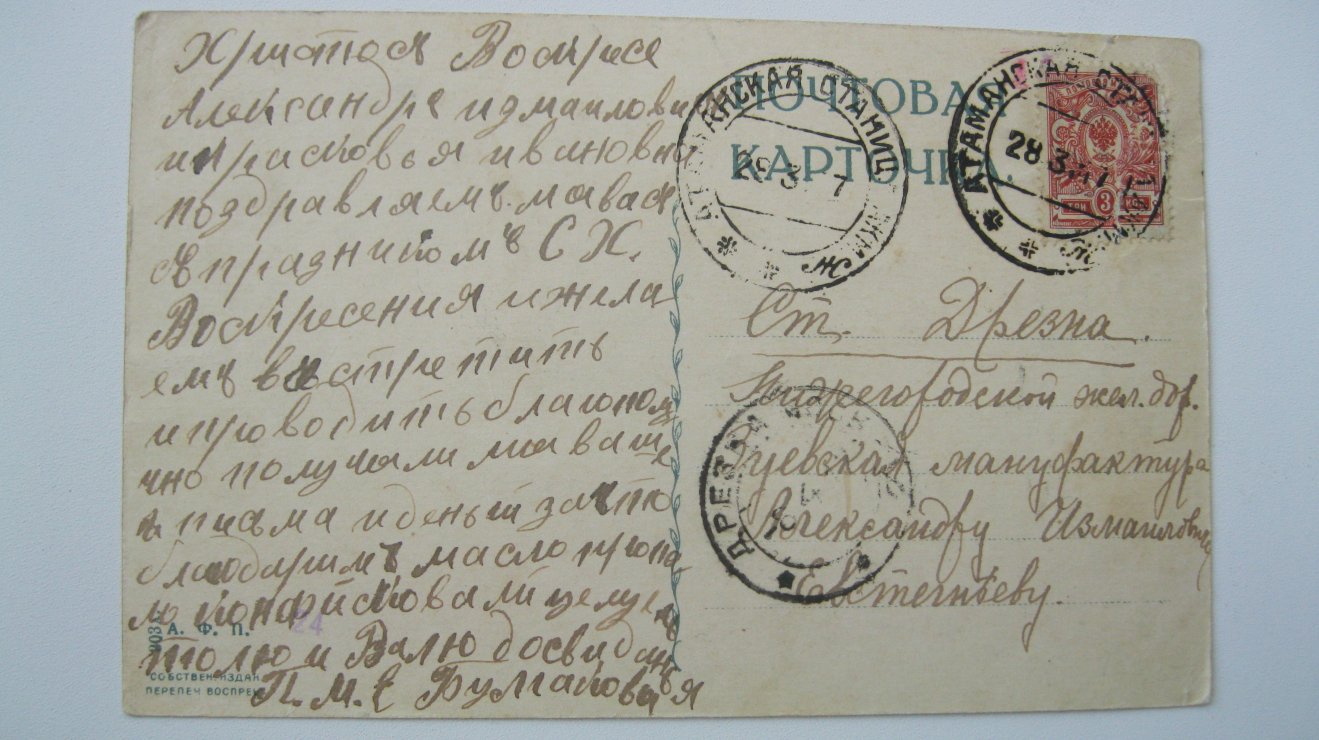 Христосъ Воскресе
Александръ измаилови
и прасковья ивановна
поздравляемъ мы васъ
съ празникомъ С Х.
Воскресения и жела
емъ встретить
и проводить благопол
чно получали мы ваше
писма и деньги за што
благодаримъ масло
конфисковали целуем
толю и Валю досвидань
П. М. Е Булгаковыя
А. Ф. П.
24
СОБСТВЕН. ИЗДАН.
ПЕРЕПЕЧ ВОСПРЕЩ
ПОЧТОВАЯ
КАРТОЧКА.
АТАМАНСКАЯ СТАНИЦ
28 3 7
АТАМАНСКАЯ СТАН
28 3 17
3
Ст. Дрезна.
Нижегородской жел. дор.
Зуевская мануфактура
Александру Измаиловичу
Евстегнѣеву.
ДРЕЗНА